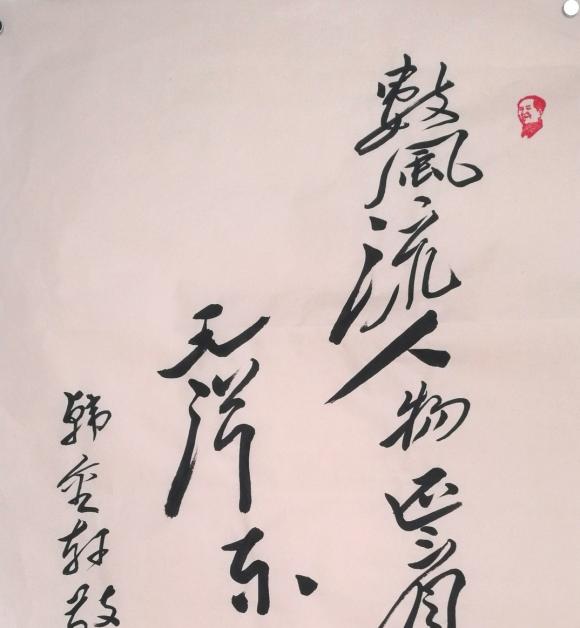 數風流人物还看
毛泽东
韩金轩敬